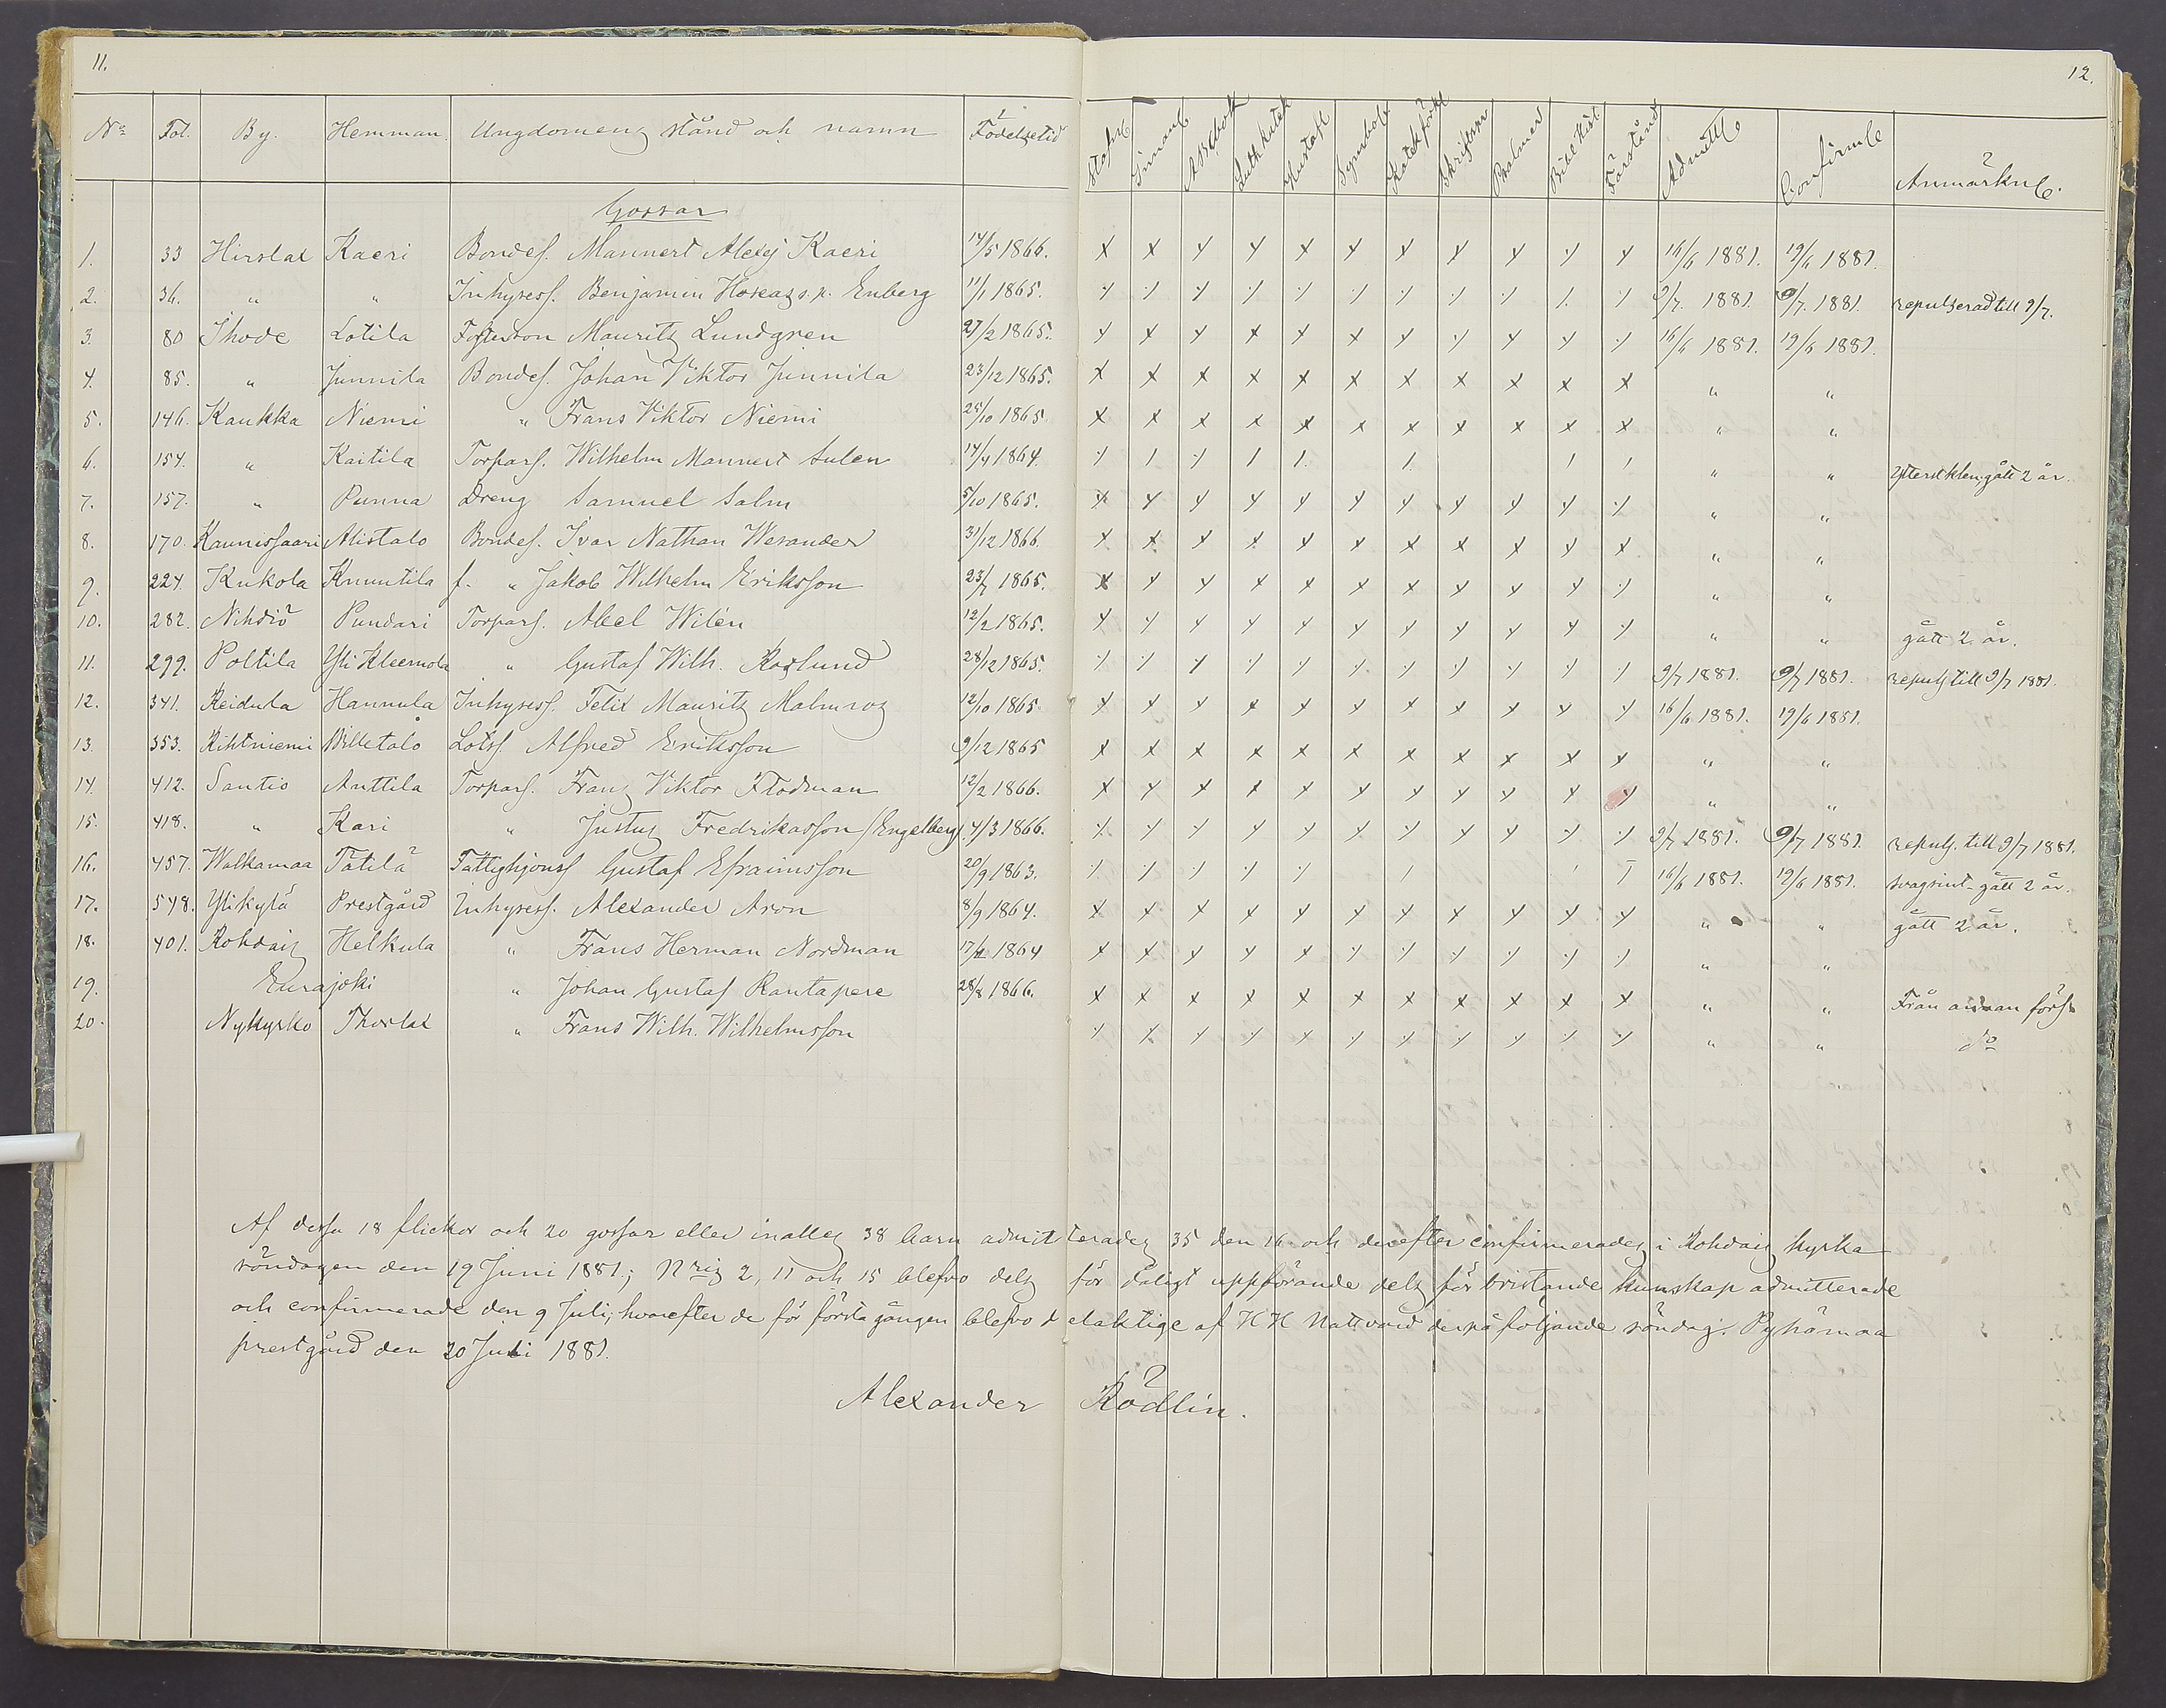 11.
12.
No Fol. By. Hemman. Ungdomens stånd och namn Födelsetid Stafn. Innanl. ABCbok Luth. katek Hustafl Symbola Katek förkl Skriftspr Psalmer Bibl. Hist Förstånd Admitt. Confirm. Anmärkn.
Gossar
1. 33 Hirslax Kaeri Bondes. Mannert Alexj Kaeri 14/5 1866. x x x x x x x x x x x 16/6 1881. 19/6 1881.
2. 36. " " Inhyress. Benjamin Hoseas s.k. Enberg 11/1 1865. 9/7 1881. 9/7. 1881. repulserad till 9/7.
3. 80 Ihode Lotila Fosterson Mauritz Lundgren 27/2 1865. 16/6 1881. 19/6 1881.
4. 85. " Junnila Bondes. Johan Viktor Junnila 23/12 1865. x x x x x x x x x x x " "
5. 146. Kaukka Niemi " Frans Viktor Niemi 25/10 1865 x x x x x x x x x x x " "
6. 154. " Kaitila Torpars. Wilhelm Mannert Sulen 14/4 1864. " " gått 2 år.
7. 157. " Punna Dreng Samuel Salm 5/10 1865. " "
8. 170. Kaunissaari Alistalo Bondes. Ivar Nathan Werander 31/12 1866. x x x x x x x x x x x " "
9. 224. Kukola Knuutila f. " Jakob Wilhelm Eriksson 23/7 1865. " "
10. 282. Nihdiö Pundari Torpars. Abel Wilén 12/2 1865. " " gått 2 år.
11. 299. Poltila Yli Kleemola " Gustaf Wilh. Roslund 28/12 1865. 9/7 1881. 9/7 1881. repuls till 9/7 1881.
12. 341. Reidula Hannula Inhyress. Felix Mauritz Malmros 12/10 1865 16/6 1881. 19/6 1881.
13. 353. Rihtniemi Willetalo Lotss Alfred Eriksson 9/12 1865 x x x x x x x x x x x " "
14. 412. Santio Anttila Torpars. Frans Viktor Flodman 12/2 1866. " "
15. 418. " Kari " Justus Fredriksson (Engelberg) 4/3 1866. 9/7 1881. 9/7 1881. repuls. till 9/7 1881.
16. 457. Walkamaa Tätilä Fattighjonss Gustaf Efraimsson 20/9 1863. 16/6 1881. 19/6 1881. svagsint - gått 2 år.
17. 548. Ylikylä Prestgård Inhyress. Alexander Aron 8/9 1864. x x x x x x x x x x x " " gått 2 år.
18. 401. Rohdais Helkula " Frans Herman Nordman 1864 " "
19. Eurajoki " Johan Gustaf Rantapere 28/8 1866. x x x x x x x x x x x " " Från annan förs.
20. Nykyrko Thorlax " Frans Wilh. Wilhelmsson " " do
Af dessa 18 flickor och 20 gossar eller inalles 38 barn admitterades 35 den 16 och derefter confirmerades i Rohdais kyrka
söndagen den 19 Juni 1881; Nris 2, 11 och 15 blefvo dels för dåligt uppförande dels för bristande kunskap admitterade
och confirmerade den 9 Juli, hvarefter de för första gången blefvo delaktige af H H Nattvard derpåföljande söndag. Pyhämaa
prestgård den 20 Juli 1881.
Alexander Rödlin.